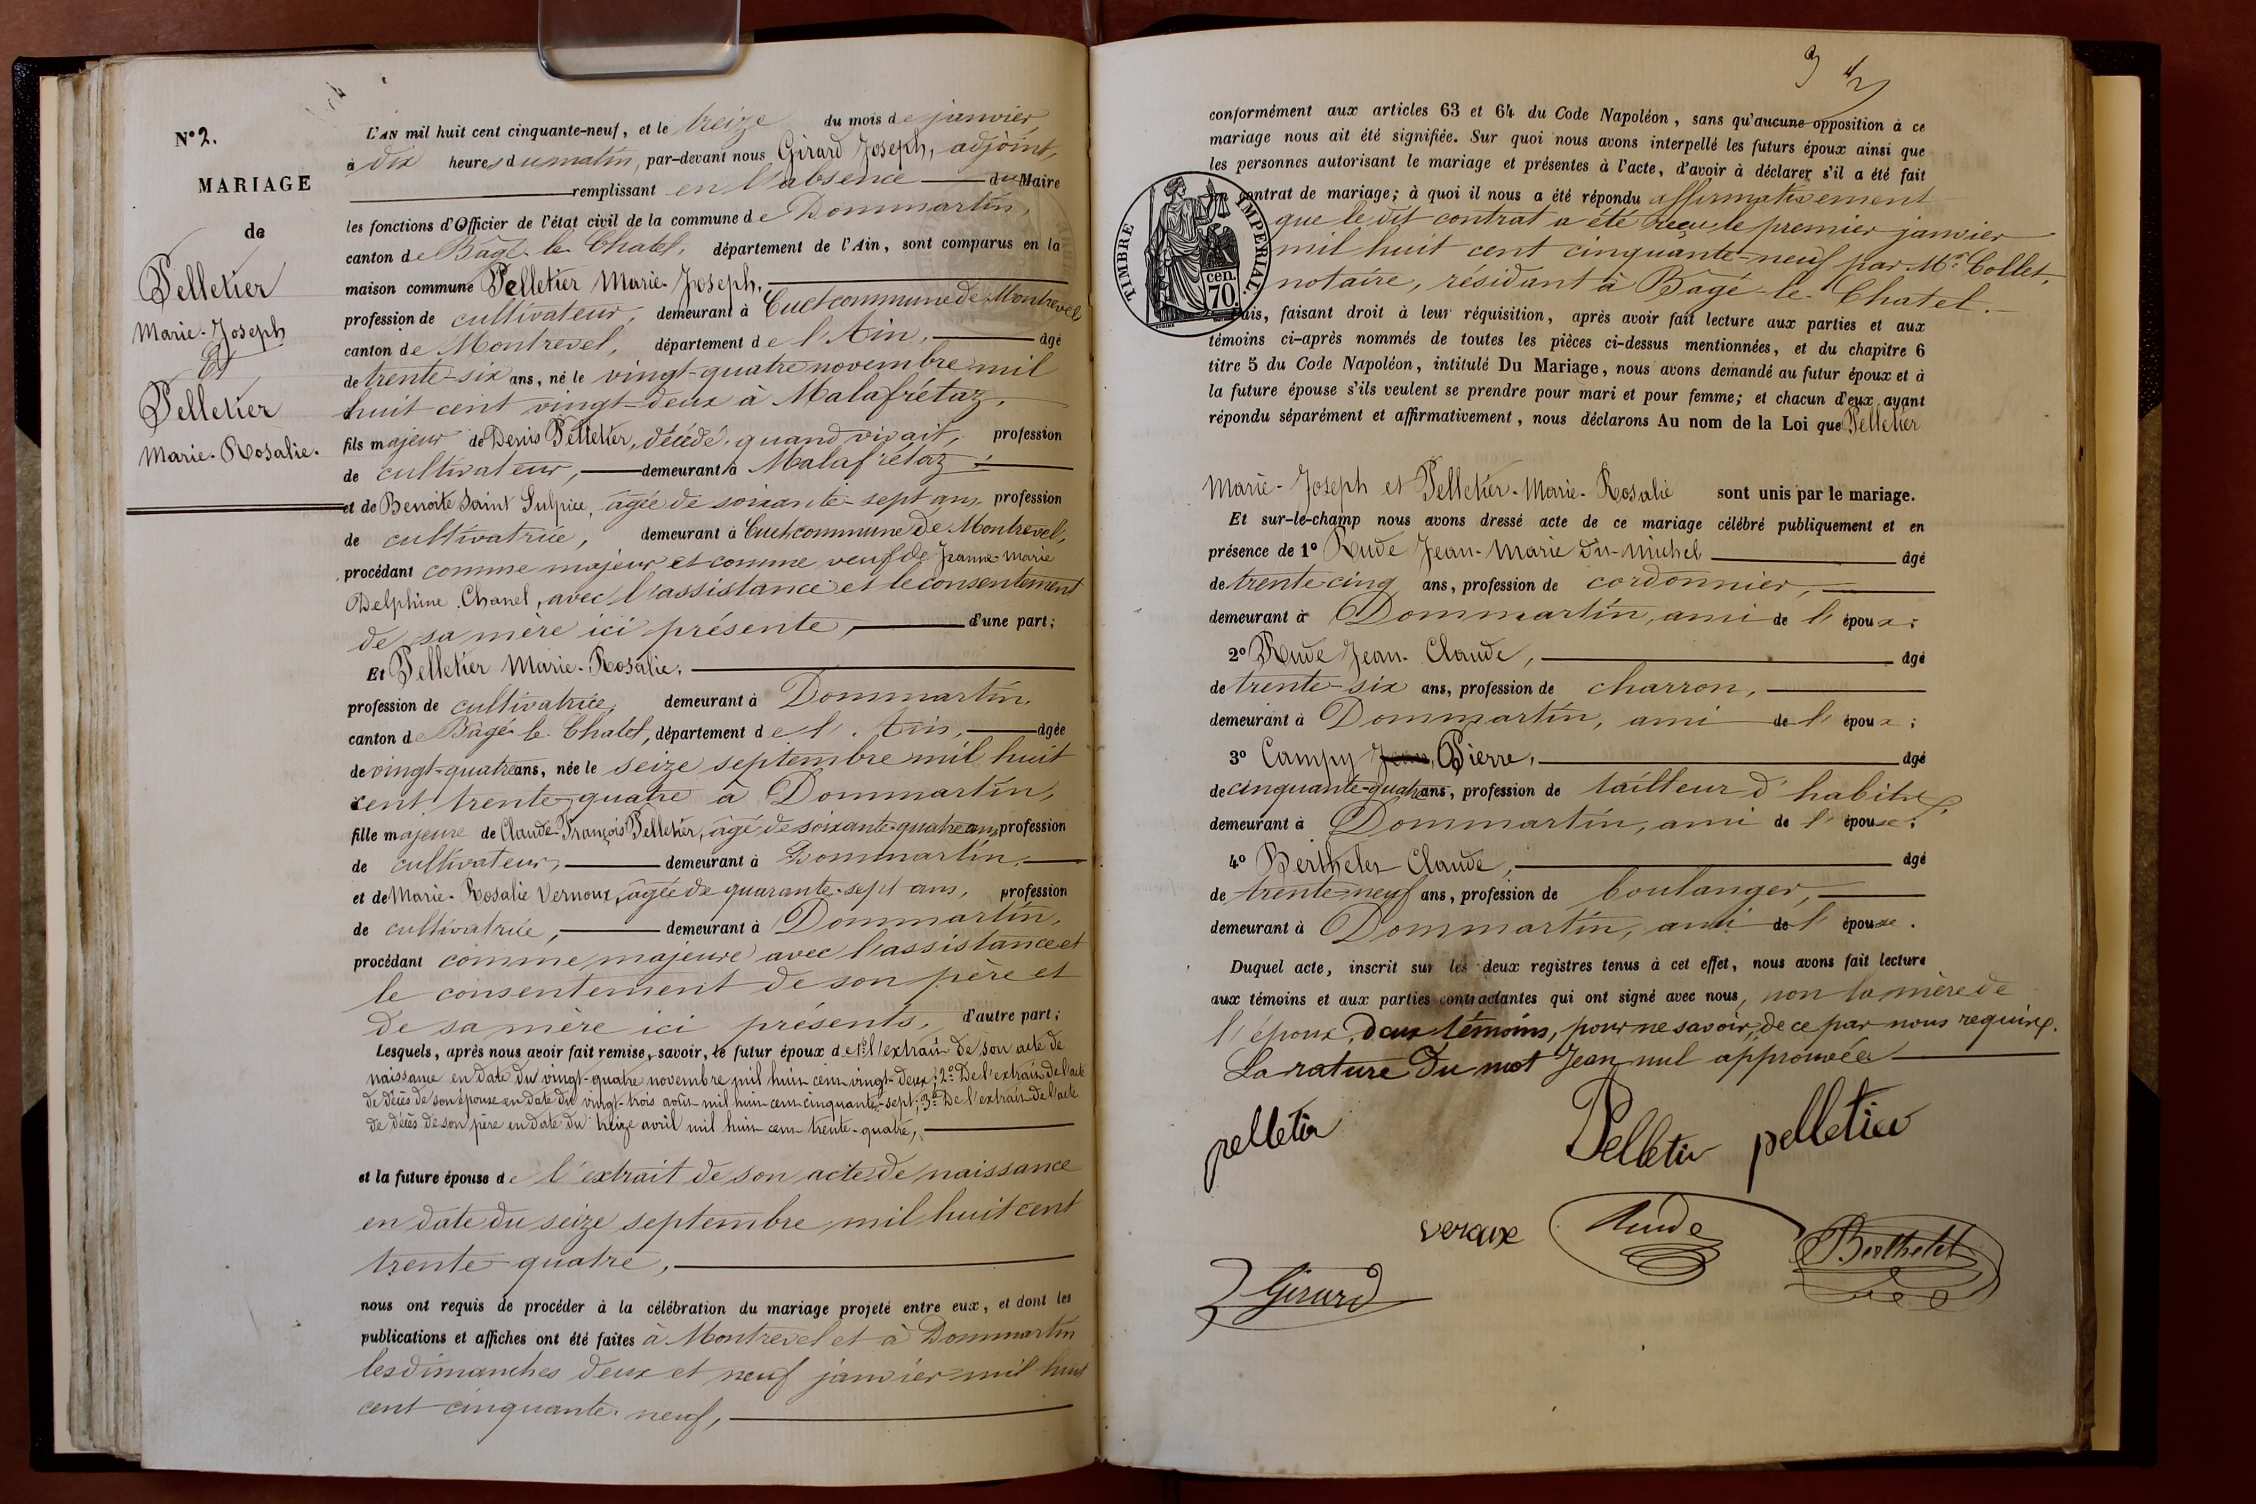 N° 2.
MARIAGE
de
Pelletier
Marie-Joseph
Et
Pelletier
Marie-Rosalie.
L'AN mil huit cent cinquante-neuf, et le treize du mois de janvier,
à dix heures du matin, par-devant nous Girard Joseph, adjoint,
remplissant en l'absence du Maire
les fonctions d'Officier de l'état civil de la commune de Dommartin,
canton de Bâgé-le-Chatel, département de l'Ain, sont comparus en la
maison commune Pelletier Marie-Joseph,
profession de cultivateur, demeurant à Cuet commune de Montrevel
canton de Montrevel, département de l'Ain, âgé
de trente-six ans, né le vingt-quatre novembre mil
huit cent vingt-deux à Malafrétaz,
fils majeur de Denis Pelletier, décédé, quand vivait, profession
de cultivateur, demeurant à Malafrétaz;
et de Benoite Saint Sulpice, âgée de soixante-sept ans, profession
de cultivatrice, demeurant à Cuet commune de Montrevel,
procédant comme majeur et comme veuf de Jeanne-Marie
Delphine Chanel, avec l'assistance et le consentement
de sa mère ici présente, d'une part;
Et Pelletier Marie-Rosalie,
profession de cultivatrice, demeurant à Dommartin,
canton de Bâgé-le-Chatel, département de l'Ain, âgée
de vingt-quatre ans, née le seize septembre mil huit
cent trente-quatre à Dommartin,
fille majeure de Claude-François Pelletier, âgé de soixante-quatre ans, profession
de cultivateur, demeurant à Dommartin,
et de Marie-Rosalie Vernoux, âgée de quarante-sept ans, profession
de cultivatrice, demeurant à Dommartin,
procédant comme majeure avec l'assistance et
le consentement de son père et
de sa mère ici présents, d'autre part;
Lesquels, après nous avoir fait remise, savoir, le futur époux de 1° l'extrait de son acte de
naissance en date du vingt-quatre novembre mil huit cent vingt-deux; 2° De l'extrait de l'acte
de décès de son épouse en date du vingt-trois août mil huit cent cinquante-sept; 3° De l'extrait de l'acte
de décès de son père en date du treize avril mil huit cent trente-quatre,
et la future épouse de l'extrait de son acte de naissance
en date du seize septembre mil huit cent
trente-quatre,
nous ont requis de procéder à la célébration du mariage projeté entre eux, et dont les
publications et affiches ont été faites à Montrevel et à Dommartin
les dimanches deux et neuf janvier mil huit
cent cinquante-neuf,
3
conformément aux articles 63 et 64 du Code Napoléon, sans qu'aucune opposition à ce
mariage nous ait été signifiée. Sur quoi nous avons interpellé les futurs époux ainsi que
les personnes autorisant le mariage et présentes à l'acte, d'avoir à déclarer s'il a été fait
un contrat de mariage; à quoi il nous a été répondu affirmativement
que le dit contrat a été reçu le premier janvier
mil huit cent cinquante-neuf par Me Collet,
notaire, résidant à Bâgé-le-Chatel.
TIMBRE IMPÉRIAL
70 cen.
Puis, faisant droit à leur réquisition, après avoir fait lecture aux parties et aux
témoins ci-après nommés de toutes les pièces ci-dessus mentionnées, et du chapitre 6
titre 5 du Code Napoléon, intitulé Du Mariage, nous avons demandé au futur époux et à
la future épouse s'ils veulent se prendre pour mari et pour femme; et chacun d'eux ayant
répondu séparément et affirmativement, nous déclarons Au nom de la Loi que Pelletier
Marie-Joseph et Pelletier-Marie-Rosalie sont unis par le mariage.
Et sur-le-champ nous avons dressé acte de ce mariage célébré publiquement et en
présence de 1° Rude Jean-Marie dit-Michel âgé
de trente-cinq ans, profession de cordonnier,
demeurant à Dommartin, ami de l'époux;
2° Rude Jean-Claude, âgé
de trente-six ans, profession de charron,
demeurant à Dommartin, ami de l'époux;
3° Campy Jean, Pierre, âgé
de cinquante-quatre ans, profession de tailleur d'habits,
demeurant à Dommartin, ami de l'épouse;
4° Berthelet Claude, âgé
de trente-neuf ans, profession de boulanger,
demeurant à Dommartin, ami de l'épouse.
Duquel acte, inscrit sur les deux registres tenus à cet effet, nous avons fait lecture
aux témoins et aux parties contractantes qui ont signé avec nous, non la mère de
l'époux, deux témoins, pour ne savoir, de ce par nous requis.
La rature du mot Jean nul approuvée
pelletier Pelletier pelletier
veraux Rude Berthelet
Girard